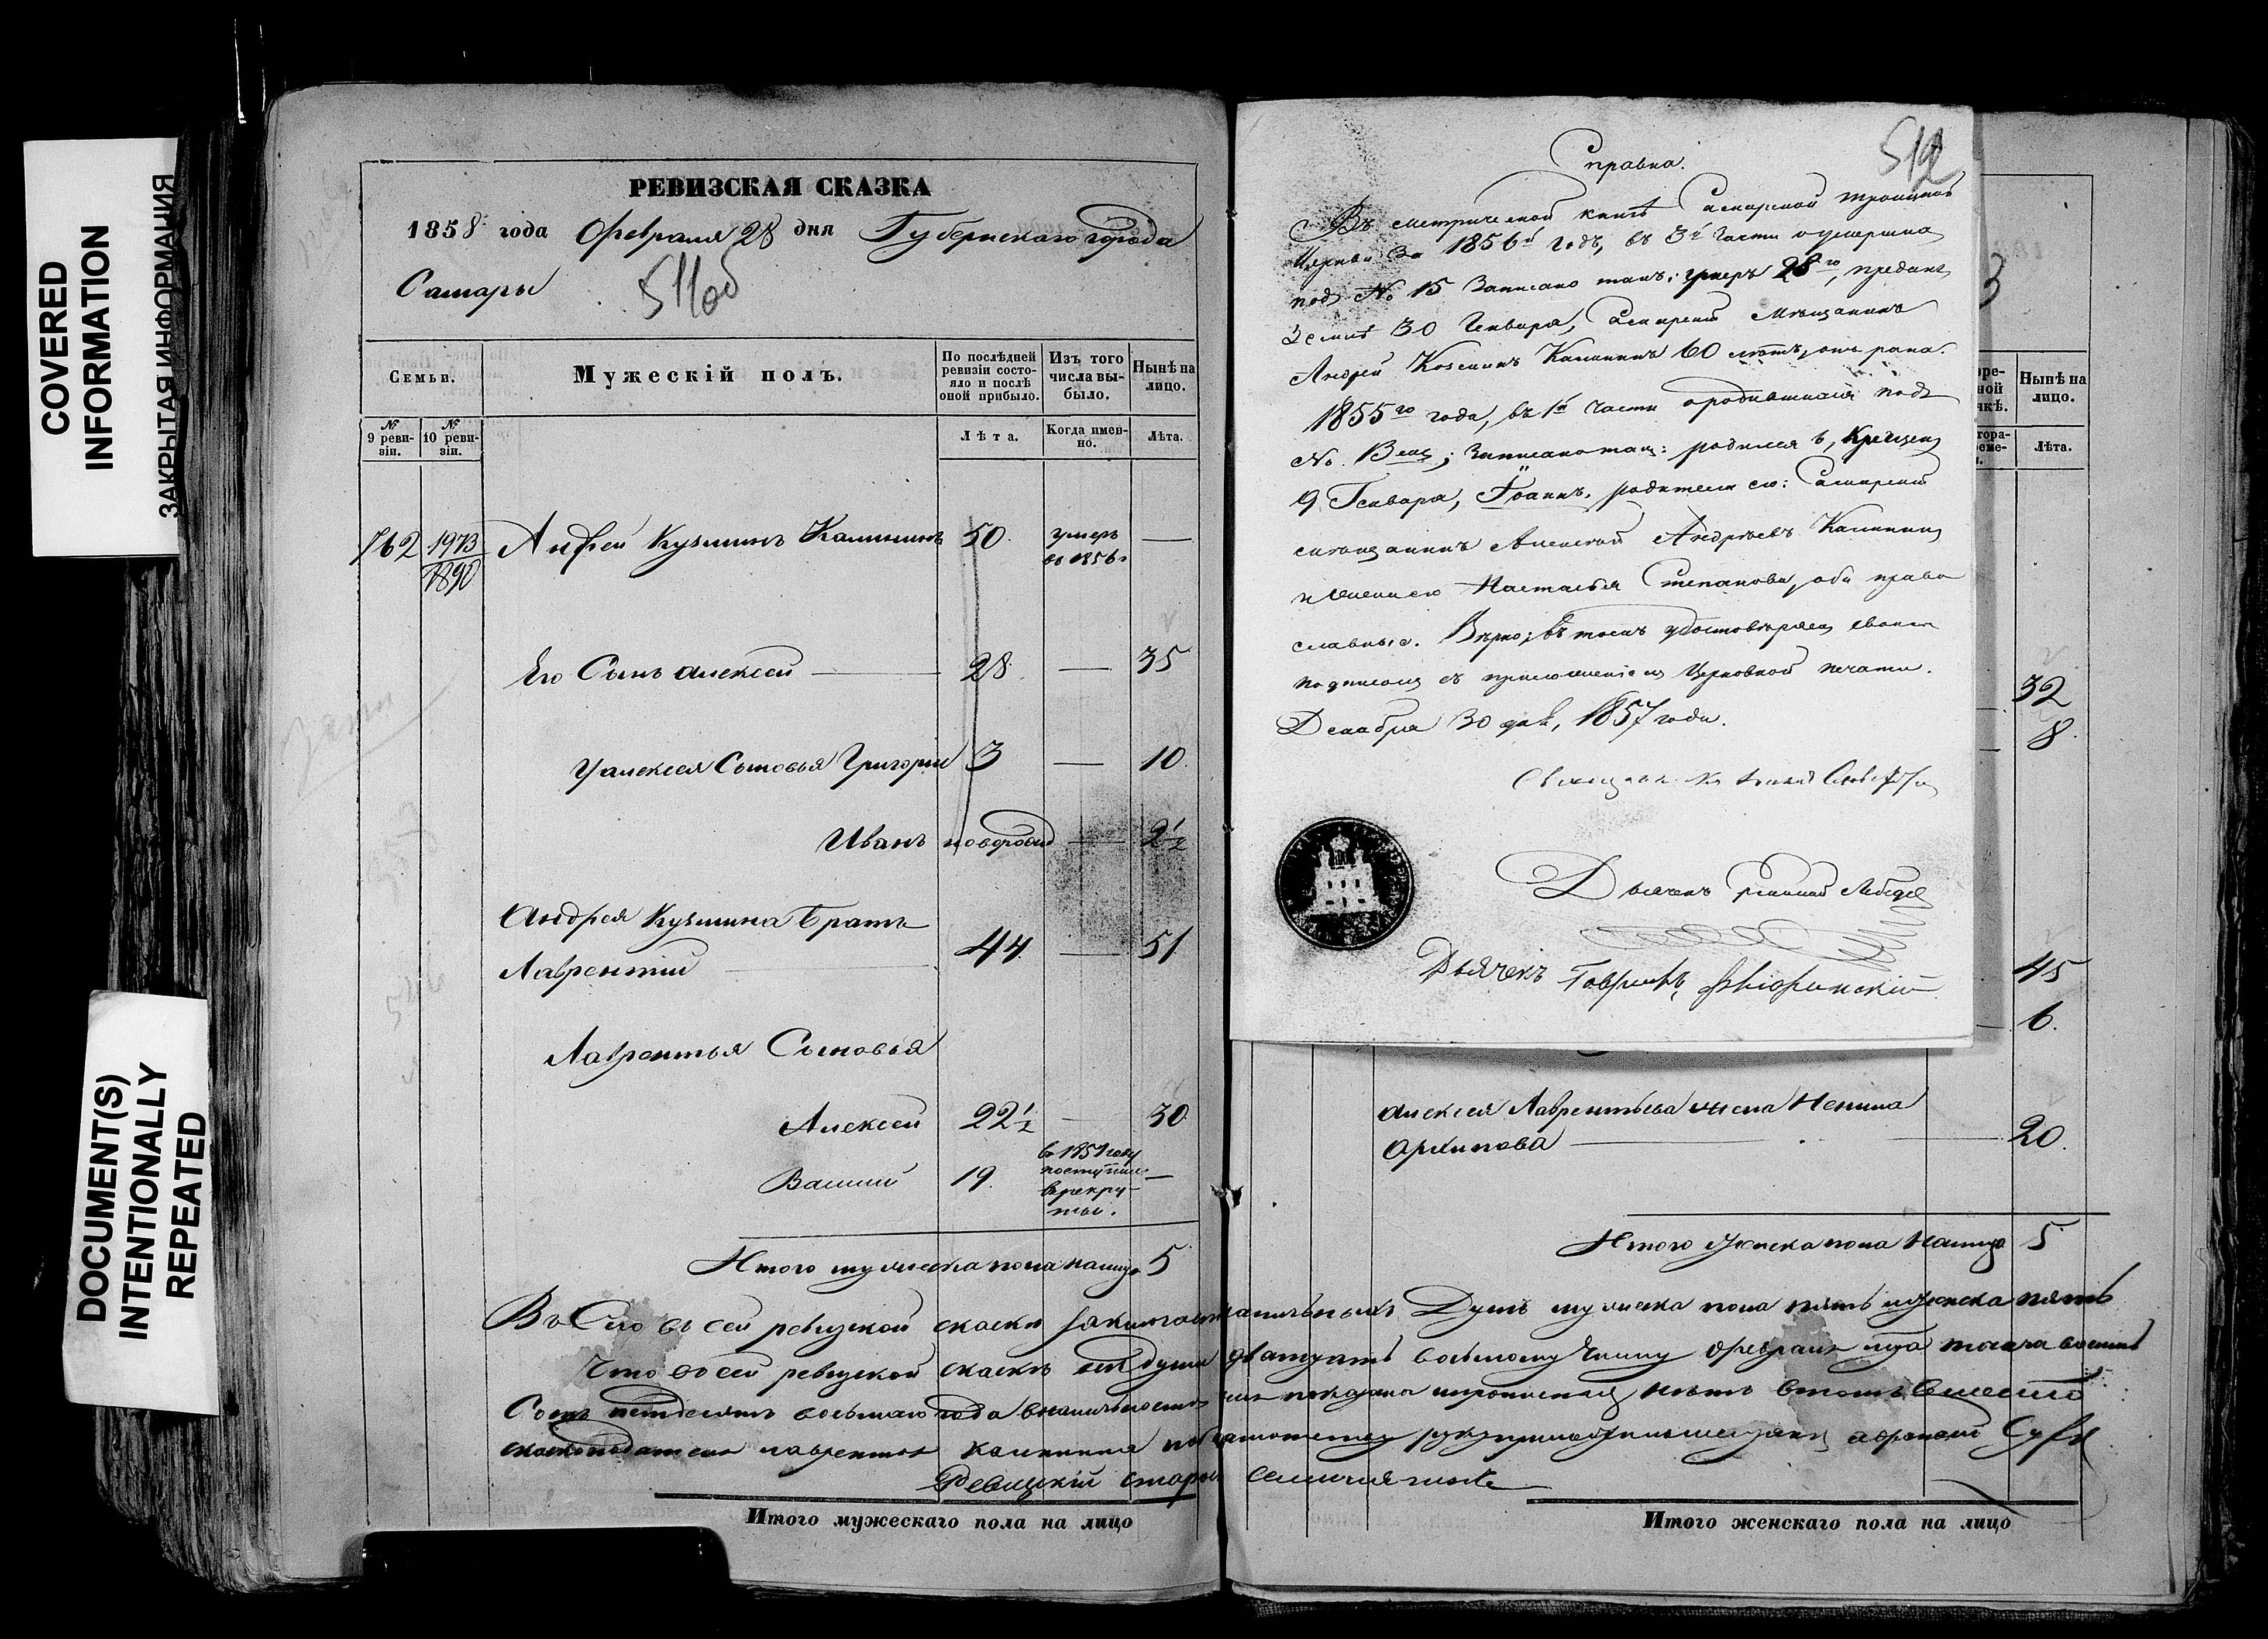 COVERED
INFORMATION
ЗАКРЫТАЯ ИНФОРМАЦИЯ
DOCUMENT(S)
INTENTIONALLY
REPEATED
РЕВИЗСКАЯ СКАЗКА
1858 года Февраля 28 дня Губернскаго города
Самары
511об
Семьи.
Мужескій полъ.
По послѣдней ревизіи состояло и послѣ оной прибыло.
Изъ того числа выбыло.
Нынѣ на лицо.
№ 9 ревизіи.
№ 10 ревизіи.
Лѣта.
Когда именно.
Лѣта.
762 1973 Андрей Кузминъ Калининъ 50. умеръ въ 1856 —
1890
Его Сынъ Алексей — 28. — 35
У Алексея Сыновья Григорій 3 — 10.
Иванъ новорожд — 2½
Андрея Кузмина Братъ
Лаврентий — 44. — 51
Лаврентья Сыновья
Алексей 22½ — 30
Василий 19. в 1851 году поступил в рекруты. —
Итого мужеска пола налицо 5
Итого мужескаго пола на лицо
512
Справка.
Въ метрической книгѣ Самарской Троицкой
Церкви за 1856й годъ, въ 3й части о умершихъ
подъ № 15 Записано такъ: умеръ 28го, преданъ
земли 30 Генваря, Самарский Мѣщанинъ
Андрей Козминъ Калининъ 60 лѣтъ, отъ рака.
1855го года, въ 1й части о родившихся подъ
№ 8м; Записано такъ: родился 6, Крещенъ
9 Генваря, Іоаннъ, родители его: Самарский
мѣщанинъ Алексей Андрѣевъ Калининъ
и жена его Настасья Степанова, оба право
славные. Вѣрно; въ томъ удостовѣряемъ своимъ
подписомъ съ приложеніемъ Церковной печати.
Декабря 30 дня, 1857 года.
Дьячекъ
Дьячекъ Гавриилъ
3
Нынѣ на лицо.
Лѣта.
32
8.
45
6.
Алексея Лаврентьева жена Ненила
Архипова — 20.
Итого женска пола Налицо 5
Въ сей ревизской скаски наличныхъ Душъ мужеска пола пять и женска пять
Что въ сей ревизской скаскѣ все души двадцать восьмому числу Февраля тысяча восемь
Сотъ петдесятъ восьмаго года
Лаврентья Калинина
Итого женскаго пола на лицо